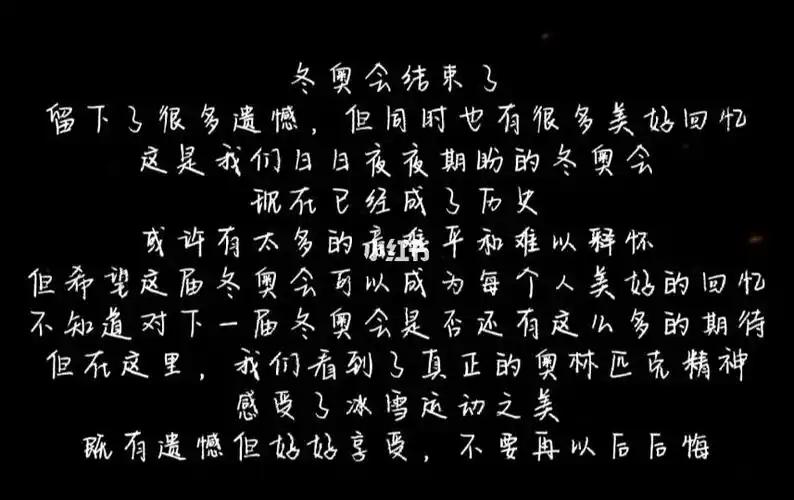 冬奥会结束了
留下了很多遗憾，但同时也有很多美好回忆
这是我们日日夜夜期盼的冬奥会
现在已经成了历史
或许有太多的意难平和难以释怀
小红书
但希望这届冬奥会可以成为每个人美好的回忆
不知道对下一届冬奥会是否还有这么多的期待
但在这里，我们看到了真正的奥林匹克精神
感受了冰雪运动之美
既有遗憾但好好享受，不要再以后后悔